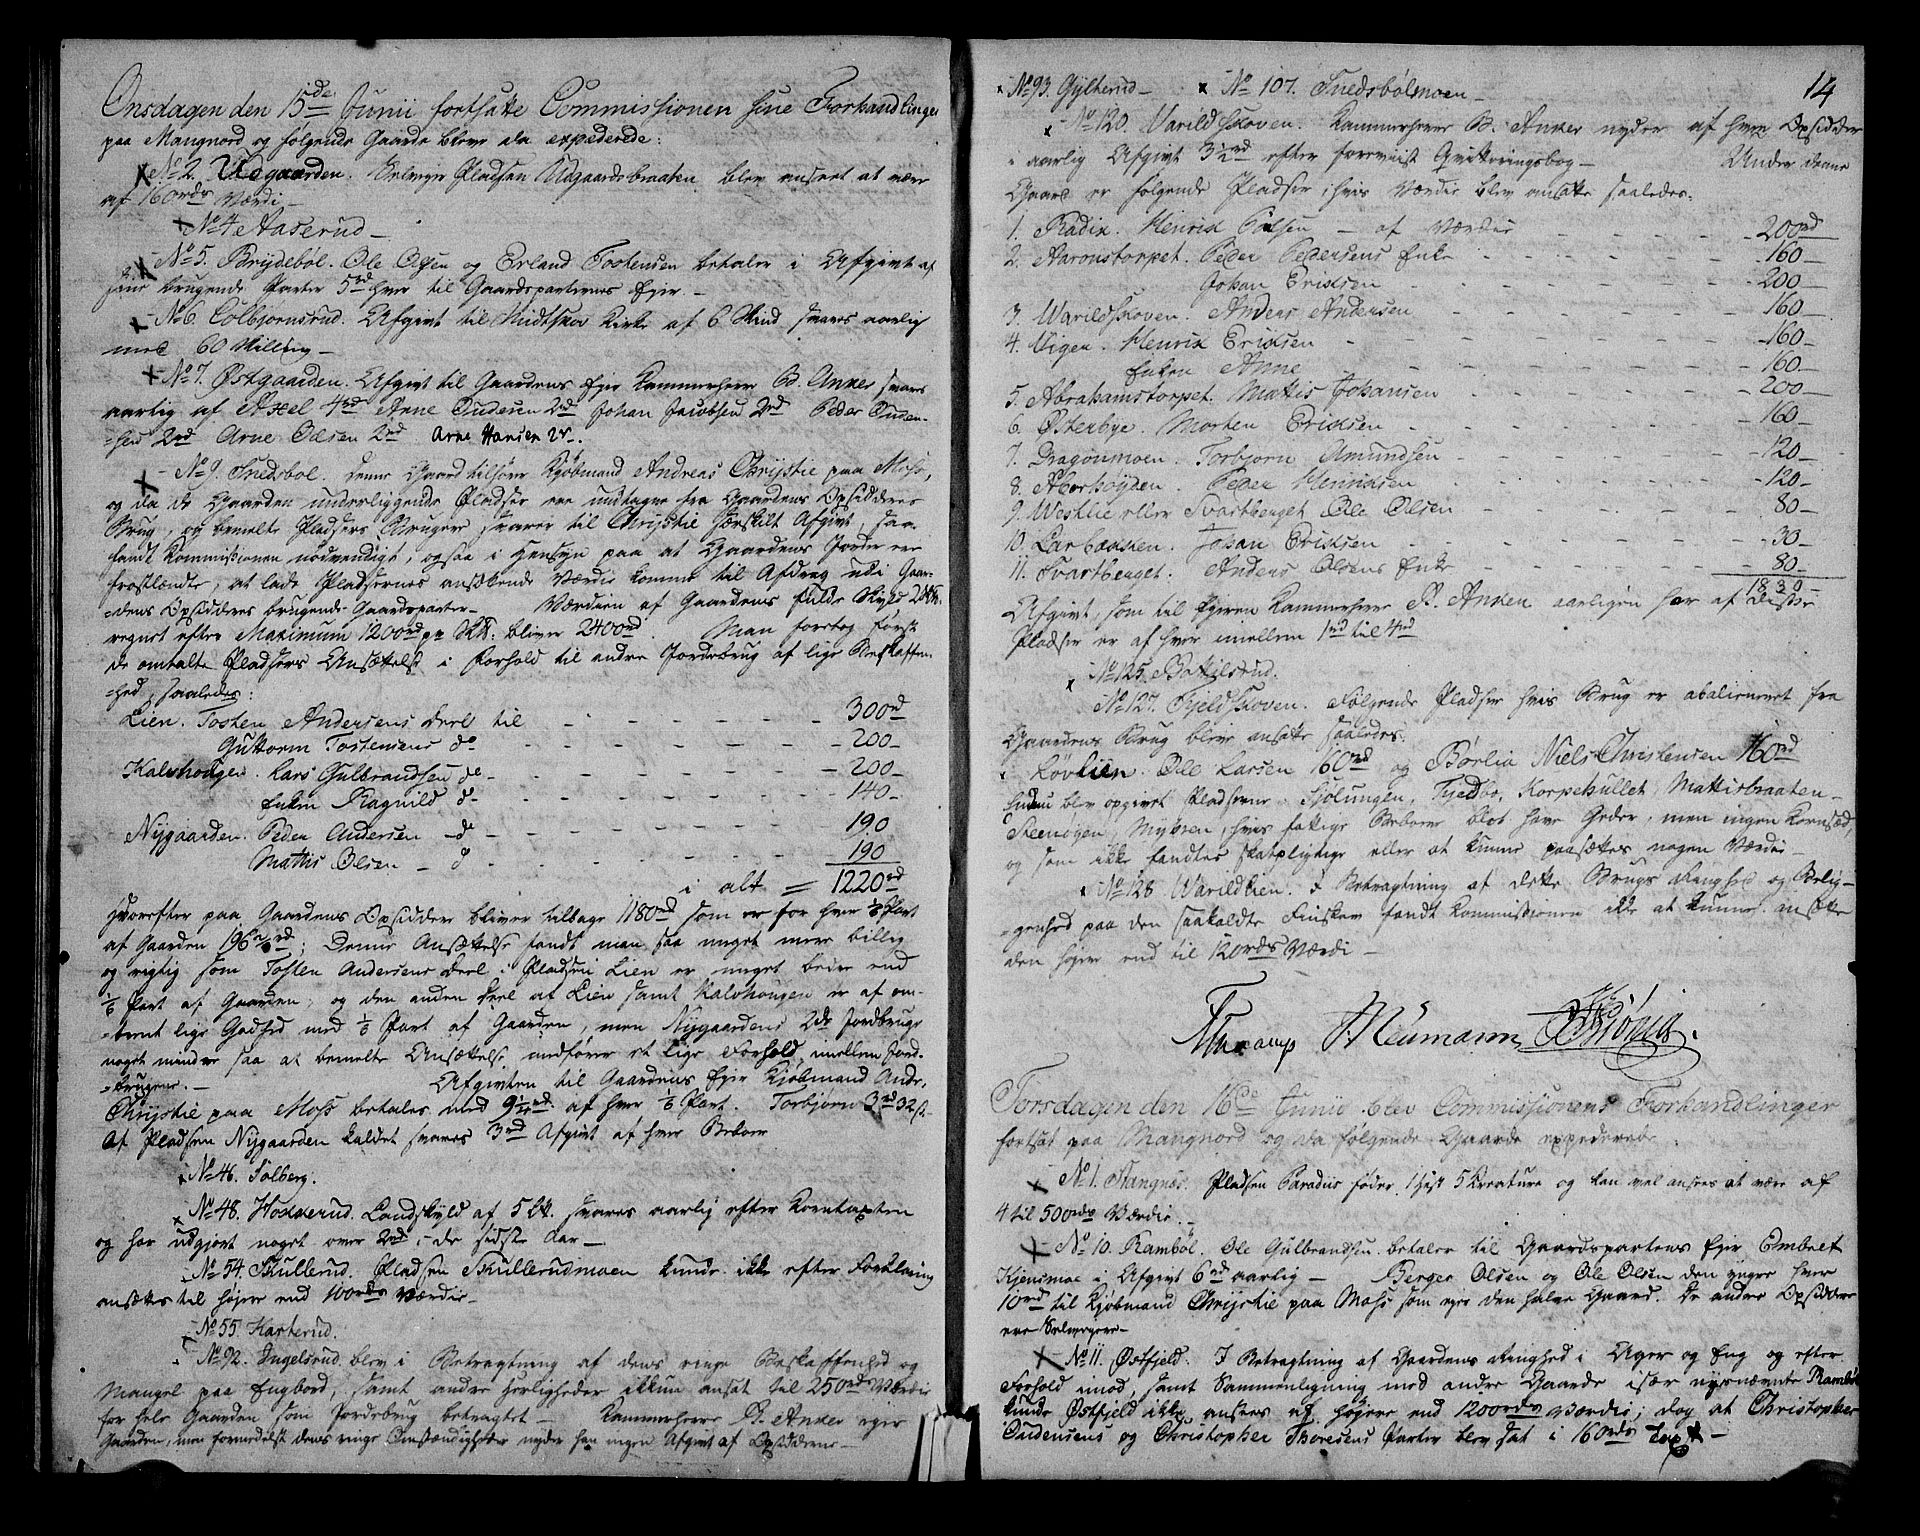 Onsdagen den 15de Junii fortsatte Commissionen sine Forhandlinger
paa Mangnord og følgende Gaarde bleve da expederede:
No 2. Udgaarden. Pladsen Udgaardsbraaten blev anseet at være
af 160rds Værdi
No 4 Aaserud
No 5. Brydebøl. Ole Olsen og Erland Tostensen betaler i Afgivt af
sine brugende Parter 5rd hver til Gaardsparternes Ejer
No 6. Colbjornsrud. Afgivt til Midtskov Kirke af 6 Skind svares aarlig
med 60 Skilling
No 7. Østgaarden. Afgivt til Gaardens Ejer Kammerherre B. Anker svares
aarlig af Axel 4rd Arne Gudesen 2rd Johan Jacobsen 2rd Peder Guden-
=sen 2rd Arne Olsen 2rd Arne Hansen 2r
No 9. Snedsbøl. Denne Gaard tilhører Kjøbmand Andreas Chrystie paa Moss,
og da de Gaarden underliggende Pladser ere undtagne fra Gaardens Opsidderes
Brug, og bemelte Pladsers Brugere svarer til Chrystie særskilt Afgivt, saa
fandt Kommissionen nødvendigt, ogsaa i Hensyn paa at Gaardens Jorder ere
frostlændte, at lade Pladsernes ansættende Værdie komme til Afdrag udi Gaar-
=dens Opsidderes brugende Gaardsparter. Værdien af Gaardens fulde Skyld
regnet efter Maximum 1200rd pr bliver 2400rd. Man foretog først
de omtalte Pladsers Ansættelse i Forhold til andre Jordebrug af lige Beskaffen-
=hed, saaledes:
Lien. Tosten Andersens Deel til 300rd
Guttorm Tostensens do 200
Kalvhougen. Lars Gulbrandsen do 200
Enken Ragnild do 140
Nygaarden. Peder Andersen do 190
Mathis Olsen do 190
i alt = 1220rd
Hvorefter paa Gaardens Opsiddere bliver tilbage 1180rd som er for hver 1/6 Part
af Gaarden 196 2/3rd; Denne Ansættelse fandt man saa meget mere billig
og rigtig som Tosten Andersens Deel i Pladsen Lien er meget bedre end
1/6 Part af Gaarden, og den anden Deel af Lien samt Kalvhougen er af om-
=trent lige Godhed med 1/6 Part af Gaarden, men Nygaardens 2de Jordbruge
noget mindre saa at bemelte Ansættelse indfører et lige Forhold imellem Jord-
=brugene. Afgivten til Gaardens Ejer Kjøbmand Andr.
Chrystie paa Moss betales med 9 rd af hver 1/6 Part. Torbjorn 3rd 32s
Af Pladsen Nygaarden kaldet svares 3rd Afgivt af hver Beboer
No 46. Solberg.
No 48. Hokkerud. Landskyld af 5 svares aarlig efter Korntaxten
og har udgjort noget over 2rd i de sidste Aar
No 54. Skullerud. Pladsen Skullerudmoen kunde ikke efter Forklaring
ansættes til højere end 100rds Værdie
No 55. Karterud.
No 92. Ingelsrud blev i Betragtning af dens ringe Beskaffenhed og
Mangel paa Engbord, samt andre Herligheder ikkun ansat til 250rds Værdie
for hele Gaarden som Jordebrug betragtet — Kammerherre B. Anker ejer
Gaarden, men formedelst dens ringe Omstændigheder nyder han ingen Afgivt af Opsidderne
14
No 93. Gylterud — No 107. Snedsbølmoen
No 120. Varildskoven. Kammerherre B. Anker nyder af hver Opsidder
i aarlig Afgivt 3½rd efter foreviist Qvitteringsbog — Under denne
Gaard er følgende Pladser, hvis Værdie blev ansatte saaledes.
1. Radix. Henrik Polsen — af Værdie 200rd
2. Aaronstorpet. Peder Pedersens Enke 160
Johan Eriksen 200
3. Warildskoven. Anders Andersen 160
4. Vigen. Henrik Eriksen 160
Enken Anne 160
5. Abrahamstorpet. Mattis Johansen 200
6. Østerbye. Morten Eriksen 160
7. Dragonmoen. Torbjorn Amundsen 120
8. Aborhøyden. Peder Henriksen 120
9. Westlie eller Svartberget Ole Olsen 80
10. Larbakken. Johan Eriksen 30
11. Svartberget. Anders Olsens Enke 80
1830
Afgivt, som til Ejeren Kammerherre B. Anker aarligen har af disse
Pladser er af hver imellem 1rd til 4rd
No 125. Bottilsrud.
No 127. Fjeldskoven. Følgende Pladser hvis Brug er abalieneret fra
Gaardens Brug bleve ansatte saaledes.
Løvlien. Ole Larsen 160rd og Børlia Niels Christensen 160rd
Endnu blev opgivet Pladserne Sjolungen, Korpehullet, Mattisbraaten
Steenøgen, Myhren, hvis fattige Beboere blot have Geder, men ingen Kornsæd
og som ikke fandtes skatpligtige eller at kunne paasættes nogen Værdie
No 128 Warildlien. I Betragtning af dette Brugs Ringhed og Belig-
=genhed paa den saakaldte Finskov fandt Kommissionen ikke at kunne ansætte
den højere end til 120rds Værdi
J. Neumann
Torsdagen den 16de Junii blev Commissionens Forhandlinger
fortsat paa Mangnord og da følgende Gaarde expederede:
No 1. Stangnæs. Pladsen Paradiis føder 1 Hest 5 Kreature og kan vel ansees at være af
4 til 500rds Værdie.
No 10. Rambøl. Ole Gulbrandsen betaler til Gaardspartens Ejer Embret
Kjensmoe i Afgivt 6rd aarlig — Berger Olsen og Ole Olsen den yngre hver
10rd til Kjøbmand Chrystie paa Moss som ejer den halve Gaard. De andre Opsiddere
ere Selvejere
No 11. Østfjeld. I Betragtning af Gaardens Ringhed i Ager og Eng og efter
Forhold imod, samt Sammenligning med andre Gaarde især nysnævnte Rambøl
kunde Østfjeld ikke ansees af højere end 1200rds Værdie; dog at Christopher
Gudensens og Christopher Thoresens Parter blev sat i 160rds Taxt